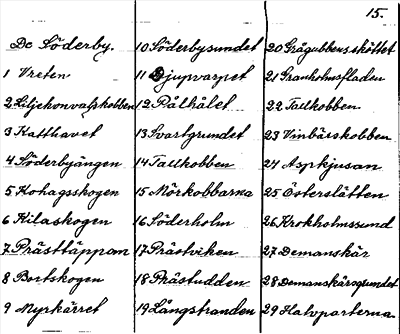 15.
De Söderby.
1 Vreten
2 Liljekonvaljskobben
3 Katthavet
4 Söderbyängen
5 Kohagsskogen
6 Kilaskogen
7 Prästtäppan
8 Bortskogen
9 Myrkärret
10 Söderbysundet
11 Djupvarpet
12 Pålhålet
13 Svartgrundet
14 Tallkobben
15 Mörkobbarna
16 Söderholm
17 Prästviken
18 Prästudden
19 Långstranden
20 Grägubbens sköttet
21 Granholmsfladen
22 Tallkobben
23 Vinbärskobben
24 Aspkjusan
25 Österslätten
26 Krokholmssund
27 Demanskär
28 Demanskärsgrundet
29 Halvparterna